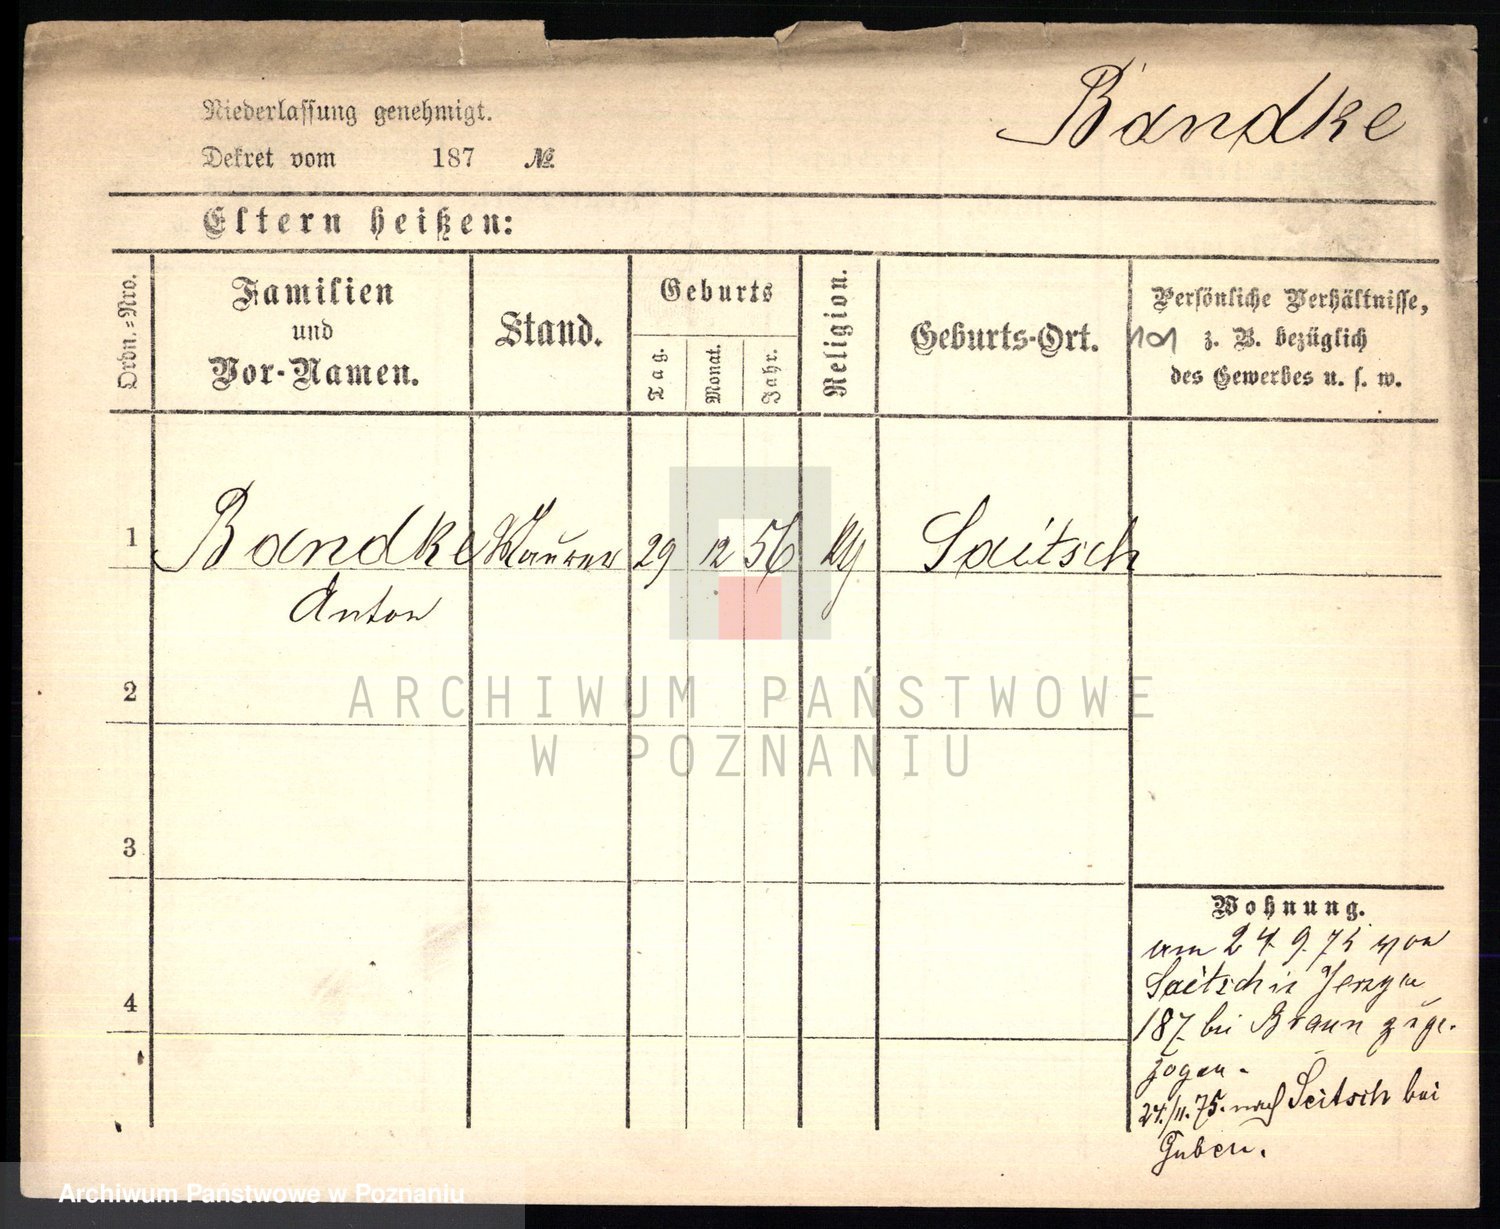 Bandke
Niederlassung genehmigt.
Dekret vom 187 №
Eltern heißen:
Ordn.=Nro.
Familien
und
Vor-Namen.
Stand.
Geburts
Tag.
Monat.
Jahr.
Religion.
Geburts-Ort.
Persönliche Verhältnisse,
z. B. bezüglich
des Gewerbes u. s. w.
1 Bandke Maurer 29 12 56 Saitsch
Anton
2
3
4
Wohnung.
am 24. 9. 75 von
Saitsch
187 bei Braun zuge-
zogen.
24./11.75. nach Seitsch bei
Guben.
ARCHIWUM PAŃSTWOWE
W POZNANIU
Archiwum Państwowe w Poznaniu